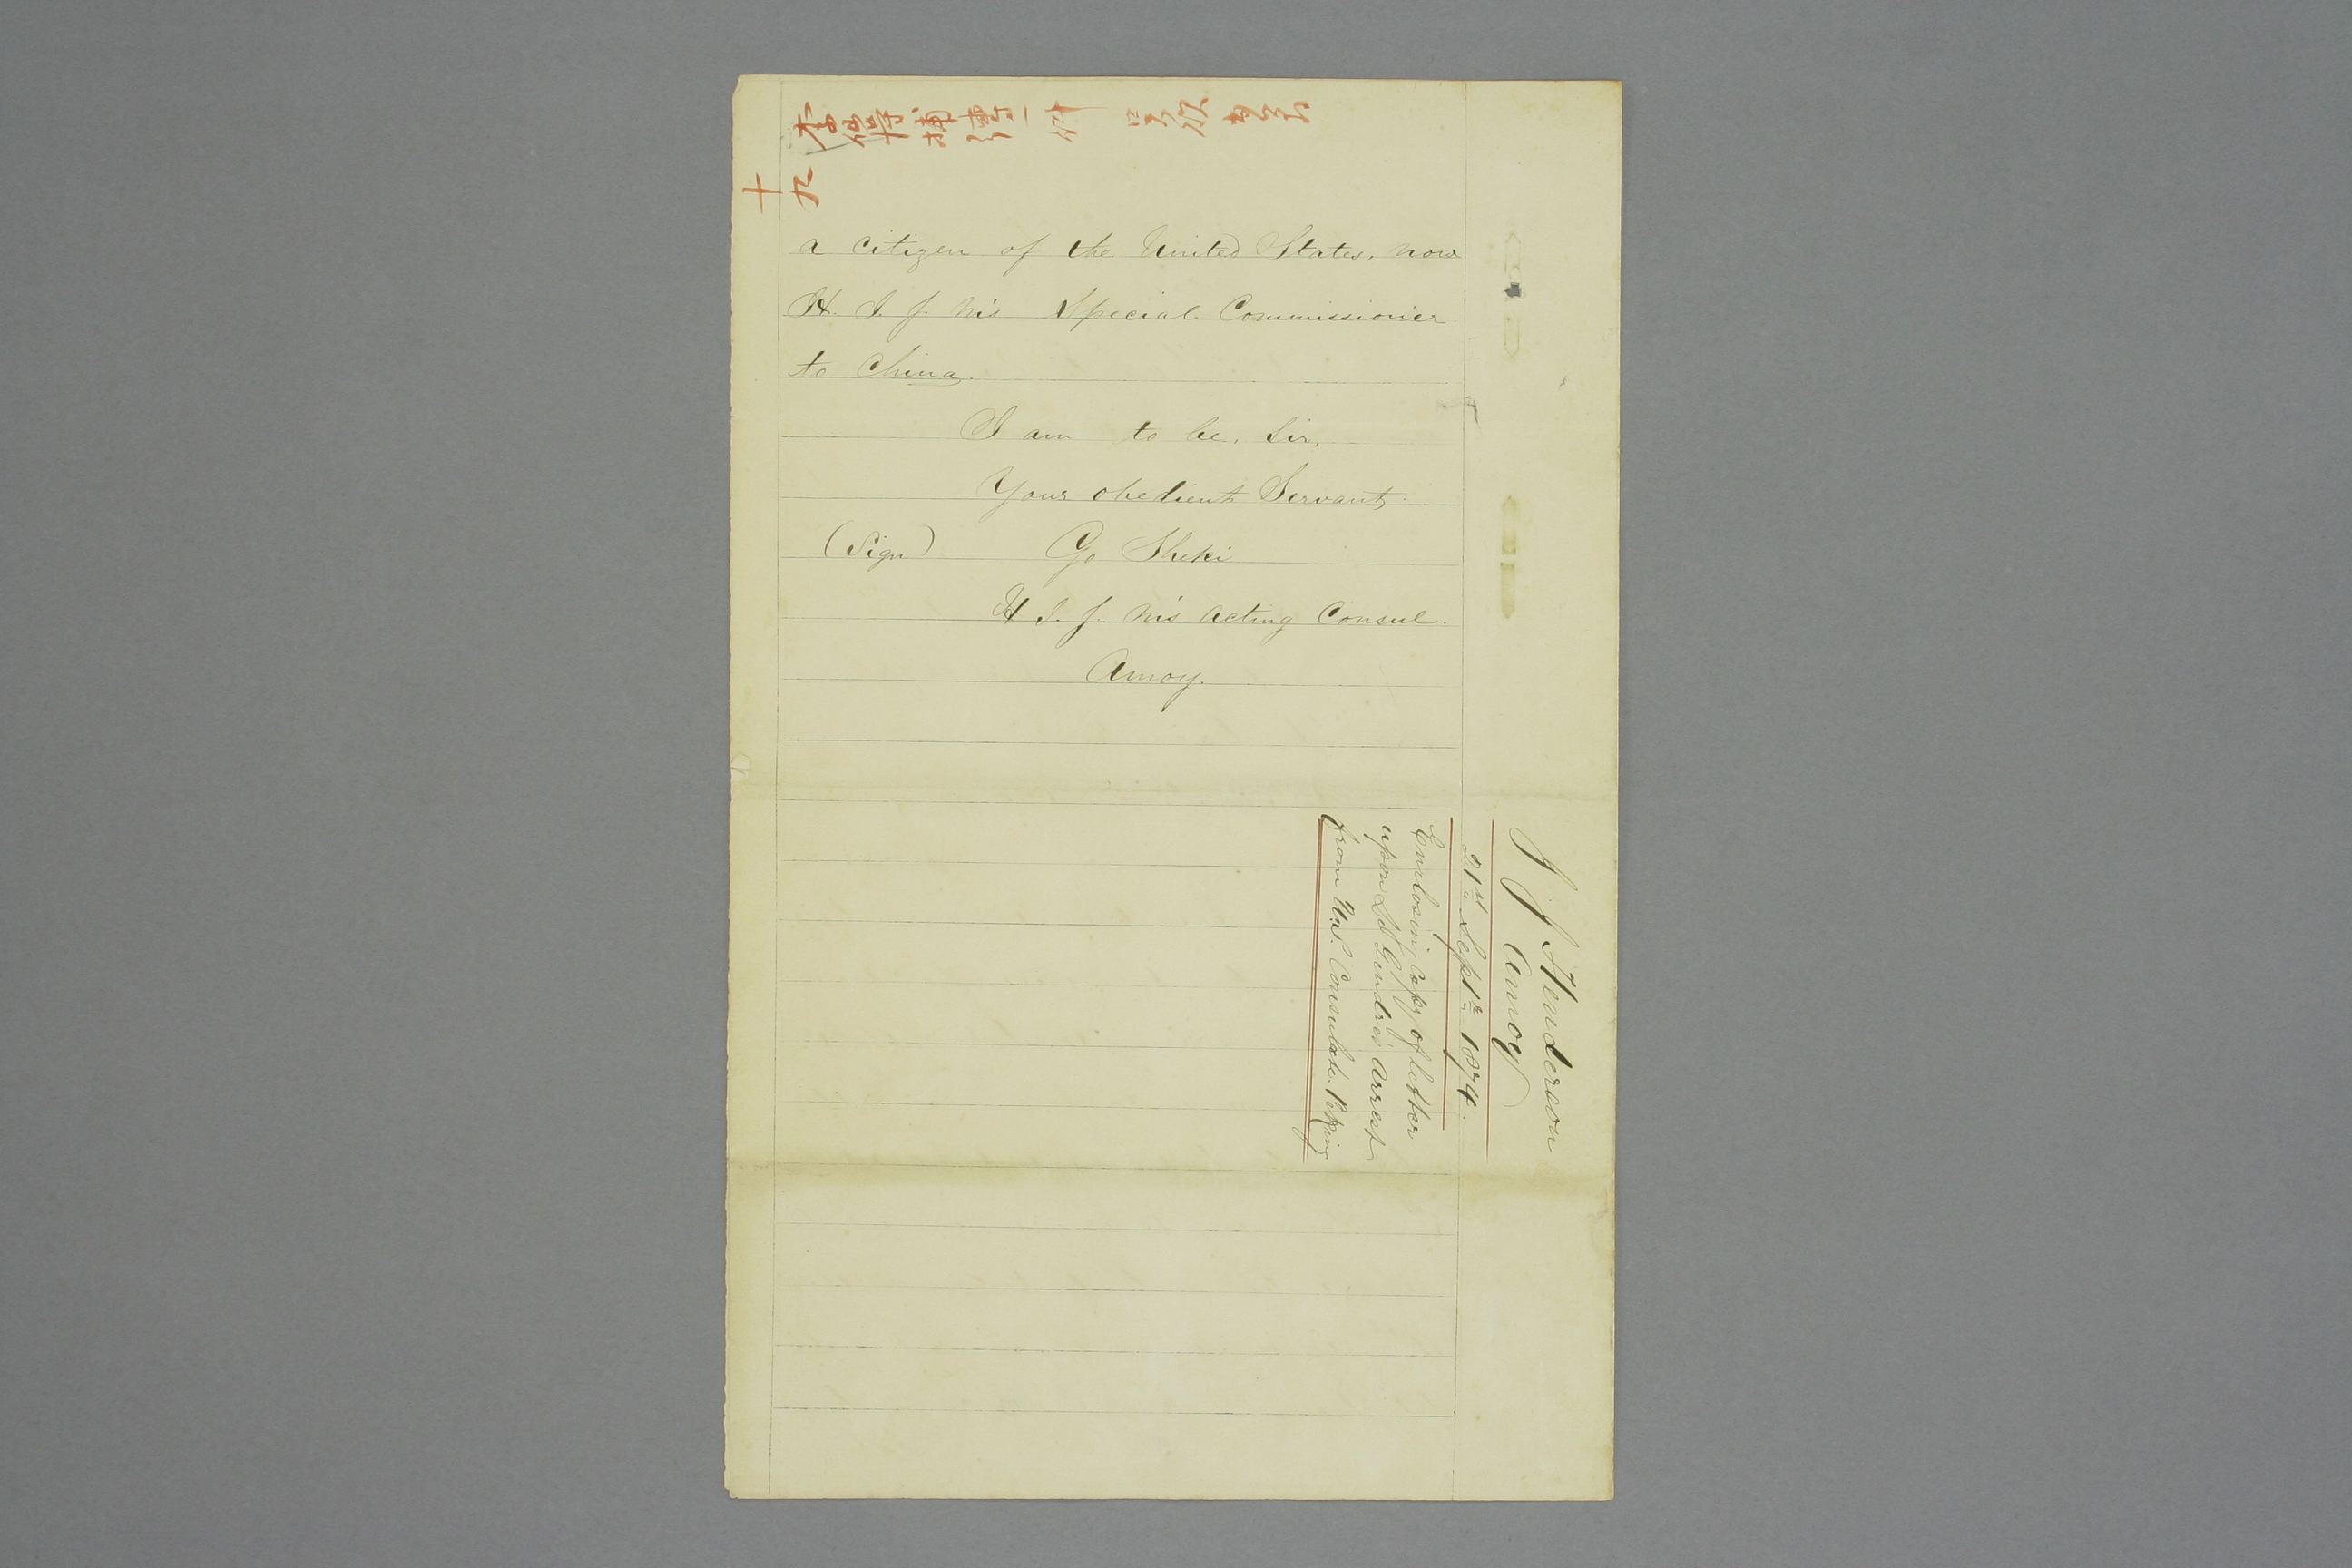 李仙得捕縛一件
十九
a citizen of the United States, now
H. I. J. M's Special Commissioner
to China.
I am to be, Sir,
Your obedient Servant,
(Sign) Go Sheki
H I. J. M's Acting Consul.
Amoy.
J J Henderson
Amoy
21st Septr 1874.
Enclosing Copy of letter
upon Le Gendre's Arrest
from U.S. Consulate. Peking